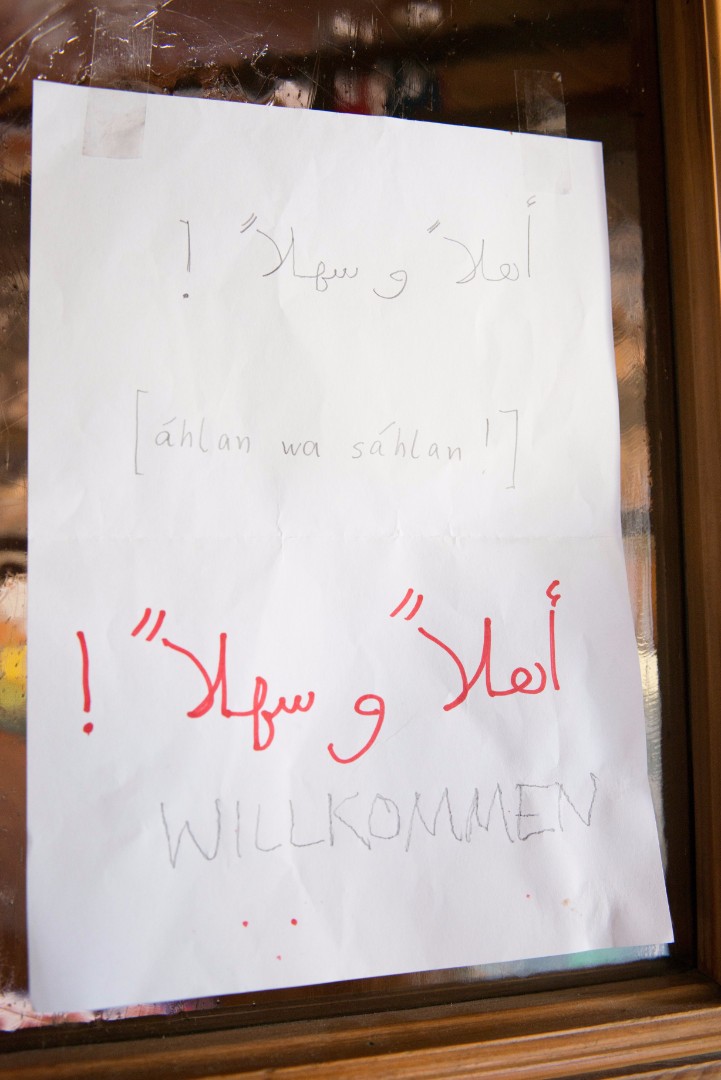 أهلاً و سهلاً !
[áhlan wa sáhlan!]
أهلاً و سهلاً !
WILLKOMMEN